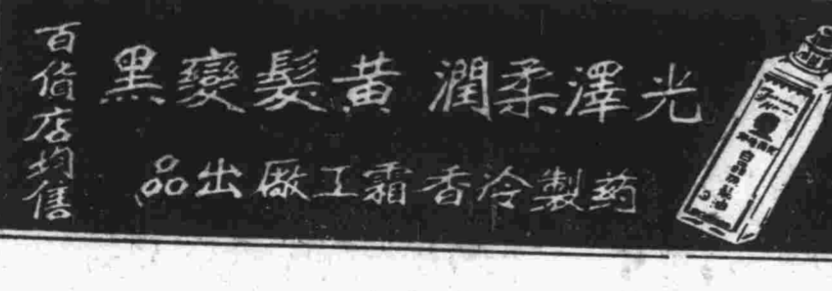 光澤柔潤 黃髮變黑
葯製冷香霜工廠出品
百貨店均售